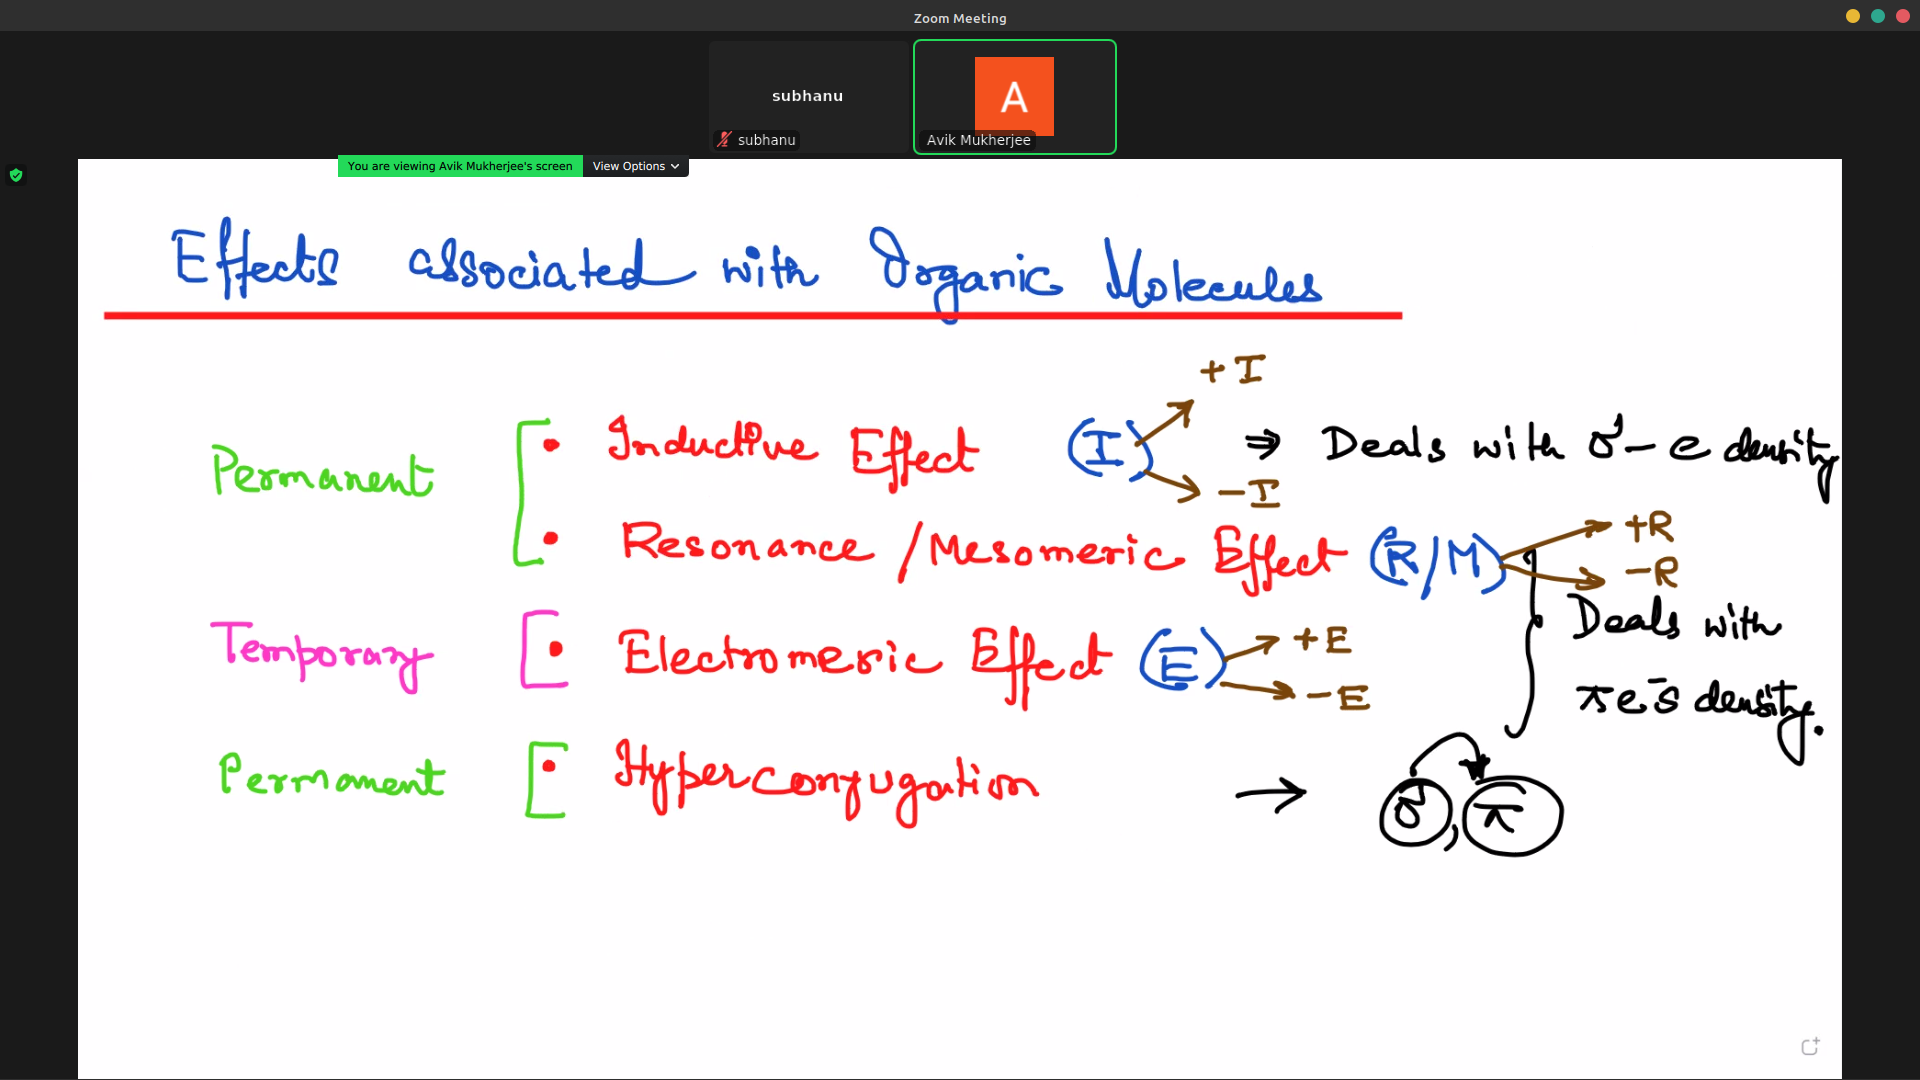 Zoom Meeting
subhanu
subhanu
A
Avik Mukherjee
You are viewing Avik Mukherjee's screen
View Options
Effects associated with Organic Molecules
Permanent
• Inductive Effect (I) +I -I ⇒ Deals with σ - e density
• Resonance / Mesomeric Effect (R/M) +R -R
Temporary
• Electromeric Effect (E) +E -E
Deals with
π e⁻s density.
Permanent
• Hyperconjugation → σ, π